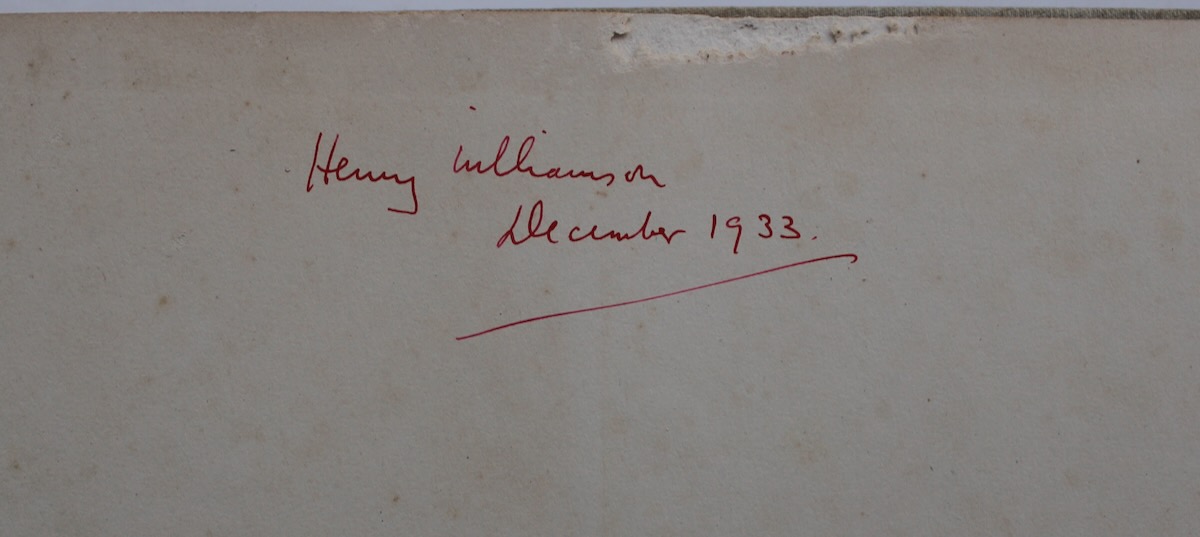 Henry Williamson
December 1933.